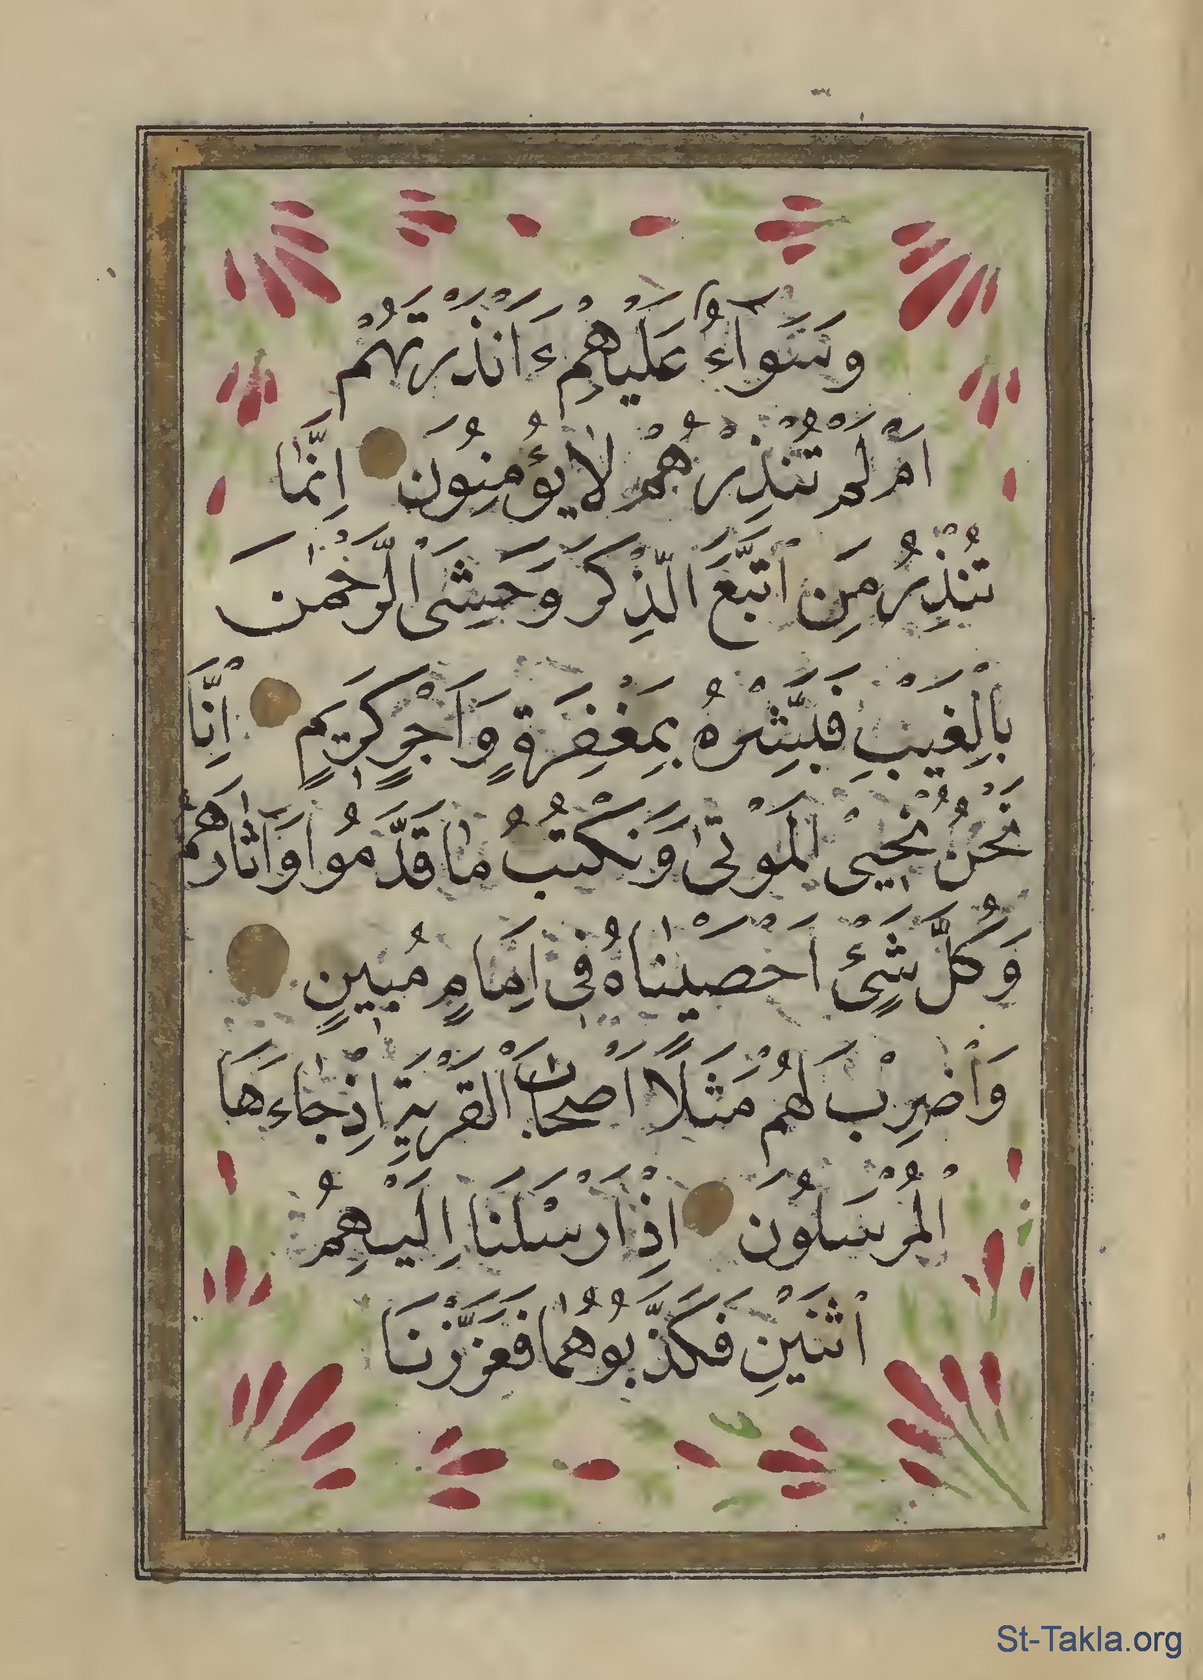 وَسَوَآءٌ عَلَيْهِمْ ءَاَنْذَرْتَهُمْ
اَمْ لَمْ تُنْذِرْهُمْ لَا يُؤْمِنُونَ اِنَّمَا
تُنْذِرُ مَنِ اتَّبَعَ الذِّكْرَ وَخَشِىَ الرَّحْمٰنَ
بِالْغَيْبِ فَبَشِّرْهُ بِمَغْفِرَةٍ وَاَجْرٍ كَرِيمٍ اِنَّا
نَحْنُ نُحْيِى الْمَوْتٰى وَنَكْتُبُ مَا قَدَّمُوا وَآثَارَهُمْ
وَكُلَّ شَىْءٍ اَحْصَيْنَاهُ فِى اِمَامٍ مُبِينٍ
وَاضْرِبْ لَهُمْ مَثَلًا اَصْحَابَ الْقَرْيَةِ اِذْ جَاءَهَا
الْمُرْسَلُونَ اِذْ اَرْسَلْنَا اِلَيْهِمُ
اثْنَيْنِ فَكَذَّبُوهُمَا فَعَزَّزْنَا
St-Takla.org